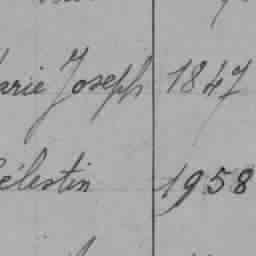 arie Joseph 1847
élestin 1958